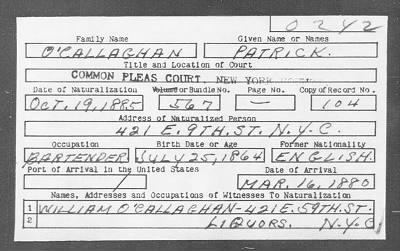 0242
Family Name Given Name or Names
O'CALLAGHAN PATRICK.
Title and Location of Court
COMMON PLEAS COURT, NEW YORK
Date of Naturalization Volume or Bundle No. Page No. Copy of Record No.
OCT. 19, 1885 567 — 104
Address of Naturalized Person
421 E. 9TH. ST. N.Y.C.
Occupation Birth Date or Age Former Nationality
BARTENDER JULY 25, 1864 ENGLISH.
Port of Arrival in the United States Date of Arrival
MAR. 16, 1880
Names, Addresses and Occupations of Witnesses To Naturalization
1 WILLIAM O'CALLAGHAN-421 E. 59TH. ST.
2 LIQUORS. N.Y.C.